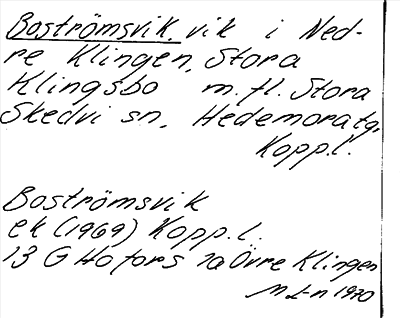 Boströmsvik, vik i Ned-
re Klingen, Stora
Klingsbo m.fl. Stora
Skedvi sn, Hedemora tg,
Kopp.l.
Boströmsvik
ek (1969) Kopp.l.
13 G Hofors 7a Övre Klingen
1970